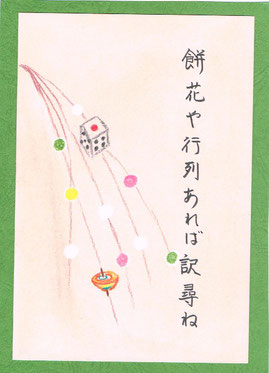 餅花や行列あれば訳尋ね